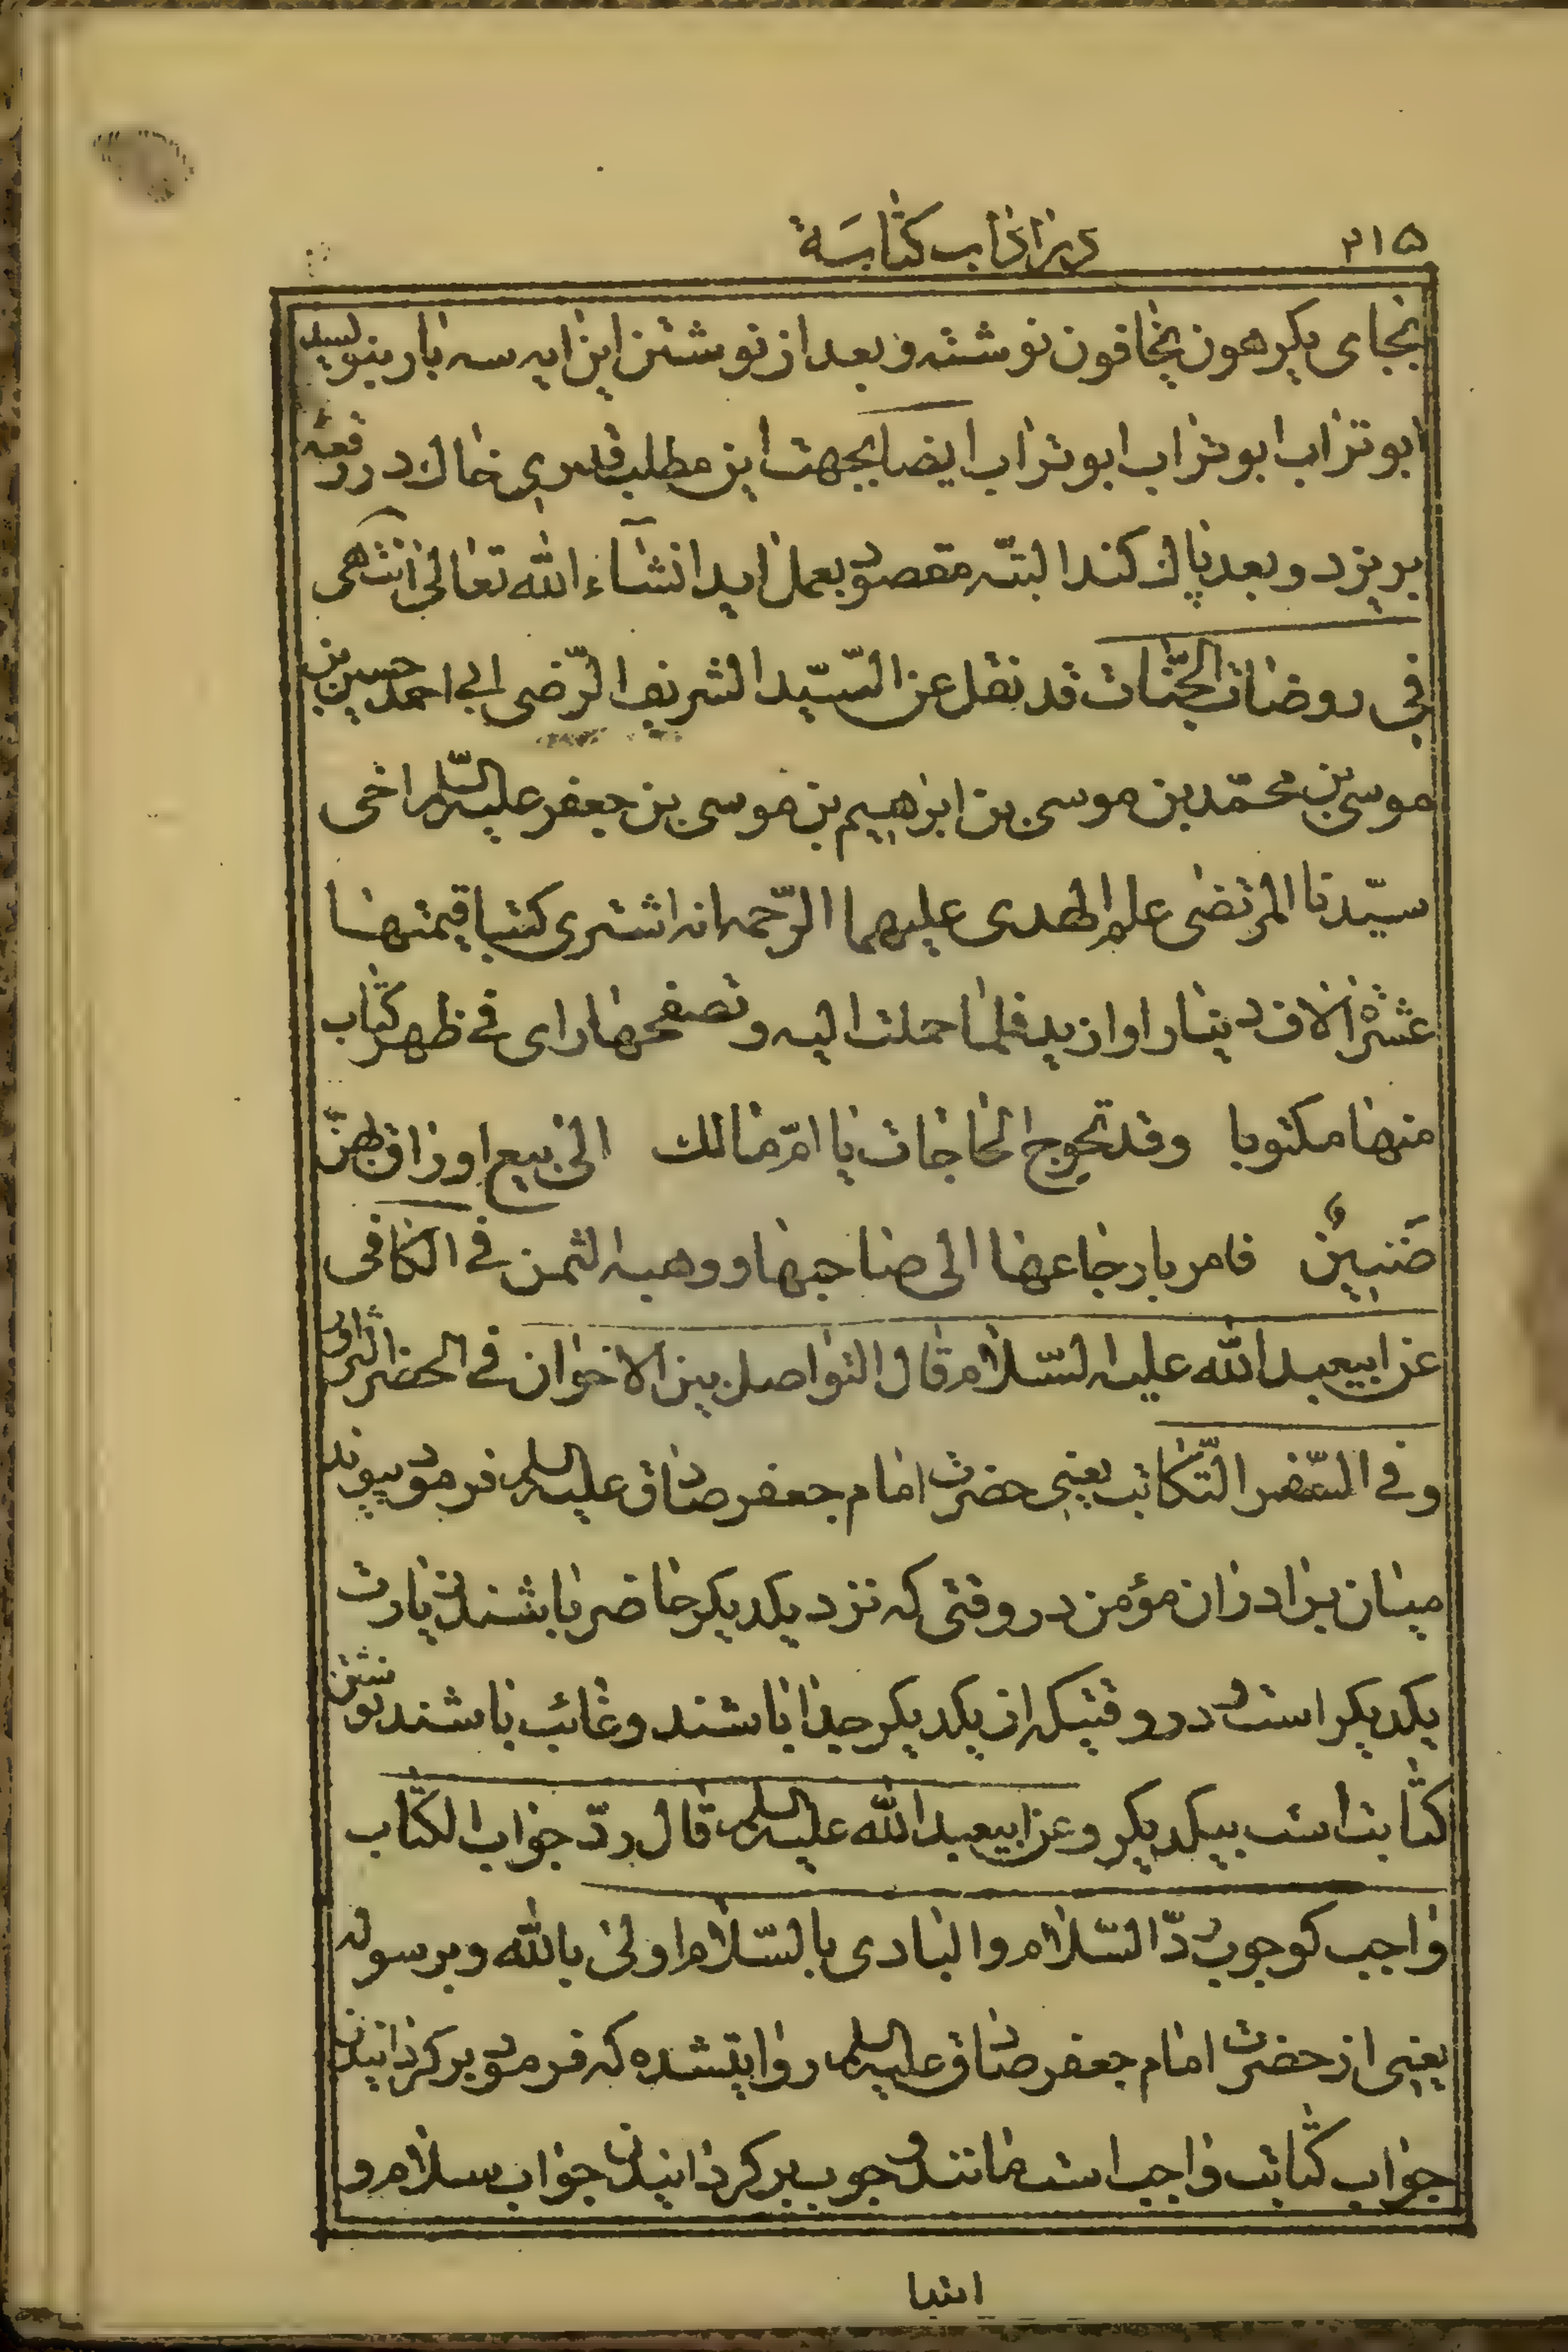 ٣١٥ در آداب کتابت
بجای یکرهون یخافون نوشته و بعد از نوشتن این ایه سه بار بنویسید
ابوتراب ابوتراب ابوتراب ایضا بجهت این مطلب قدری خاک در رقعه
بریزد و بعد پاک کند البتّه مقصود بعمل اید انشآء الله تعالی انتهی
فی روضات الجنّات قد نقل عن السّیّد الشریف الرّضی ابی احمد حسین بن
موسی بن محمّد بن موسی بن ابرهیم بن موسی بن جعفر علیه السّلم اخی
سیّدنا المرتضی علم الهدی علیهما الرّحمه انه اشتری کتبا قیمتها
عشرة الاف دینار او ازید فلما حملت الیه و تصفحها رای فی ظهر کتاب
منها مکتوبا وقد تحوج الحاجات یا امّ مالك الی بیع اوراق بهنّ
ضَنینٌ فامر بارجاعها الی صاحبها و وهبه الثمن فی الکافی
عن ابیعبد الله علیه السّلام قال التواصل بین الاخوان فی الحضر التزاور
و فی السّفر التّکاتب یعنی حضرت امام جعفر صادق علیه السلم فرمود پیوند
میان برادران مؤمن در وقتی که نزد یکدیکر حاضر باشند زیارت
یکدیکر است و در وقتیکه از یکدیکر جدا باشند و غائب باشند نوشتن
کتابت است بیکدیکر و عن ابیعبد الله علیه السلم قال ردّ جواب الکتاب
واجب کوجوب ردّ السّلام و البادی بالسّلام اولی بالله و برسوله
یعنی از حضرت امام جعفر صادق علیه السلم روایتشده که فرمود برکردانیدن
جواب کتابت واجب است مانند وجوب برکردانیدن جواب سلام و
ابتدا